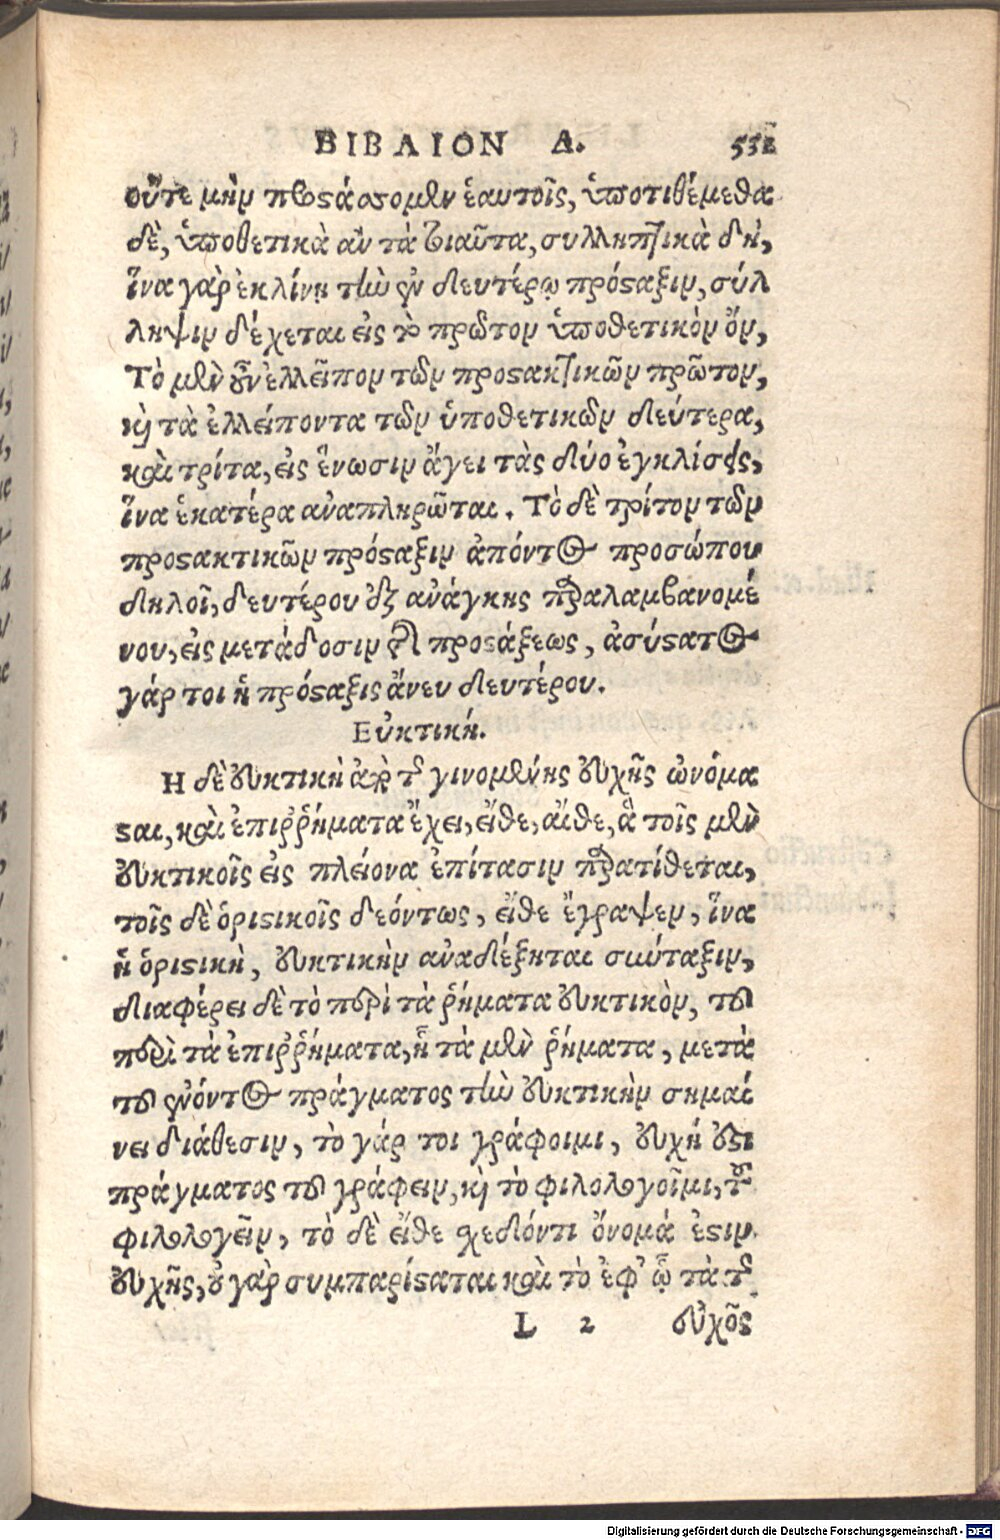 ΒΙΒΛΙΟΝ Δ. 531
οὔτε μὴν προστάσσομεν ἑαυτοῖς, ὑποτιθέμεθα
δὲ, ὑποθετικὰ ἂν τὰ τοιαῦτα, συλληπτικὰ δὴ,
ἵνα γὰρ ἐκλίνῃ τὴν ἐν δευτέρῳ πρόσταξιν, σύλ
ληψιν δέχεται εἰς τὸ πρῶτον ὑποθετικὸν ὄν,
Τὸ μὲν οὖν ἐλλεῖπον τῶν προστακτικῶν πρῶτον,
καὶ τὰ ἐλλείποντα τῶν ὑποθετικῶν δεύτερα,
καὶ τρίτα, εἰς ἕνωσιν ἄγει τὰς δύο ἐγκλίσεις,
ἵνα ἑκατέρα ἀναπληρῶται. Τὸ δὲ τρίτον τῶν
προστακτικῶν πρόσταξιν ἀπόντος προσώπου
δηλοῖ, δευτέρου ἐξ ἀνάγκης παραλαμβανομέ
νου, εἰς μετάδοσιν τῆς προστάξεως, ἀσύστατος
γάρ τοι ἡ πρόσταξις ἄνευ δευτέρου.
Εὐκτική.
Η δὲ εὐκτικὴ ἀπὸ τῆς γινομένης εὐχῆς ὠνόμα
σται, καὶ ἐπιῤῥήματα ἔχει, εἴθε, αἴθε, ἃ τοῖς μὲν
εὐκτικοῖς εἰς πλείονα ἐπίτασιν παρατίθεται,
τοῖς δὲ ὁριστικοῖς δεόντως, εἴθε ἔγραψεν, ἵνα
ἡ ὁριστικὴ, εὐκτικὴν ἀναδέξηται σύνταξιν,
διαφέρει δὲ τὸ περὶ τὰ ῥήματα εὐκτικὸν, τοῦ
περὶ τὰ ἐπιῤῥήματα, ᾗ τὰ μὲν ῥήματα, μετὰ
τοῦ ἐνόντος πράγματος τὴν εὐκτικὴν σημαί
νει διάθεσιν, τὸ γάρ τοι γράφοιμι, εὐχή ἐστι
πράγματος τοῦ γράφειν, καὶ τὸ φιλολογοῖμι, τοῦ
φιλολογεῖν, τὸ δὲ εἴθε σχεδόντι ὄνομά ἐστιν
εὐχῆς, οὐ γὰρ συμπαρίσταται καὶ τὸ ἐφ' ᾧ τὰ τῆς
L 2 εὐχῆς